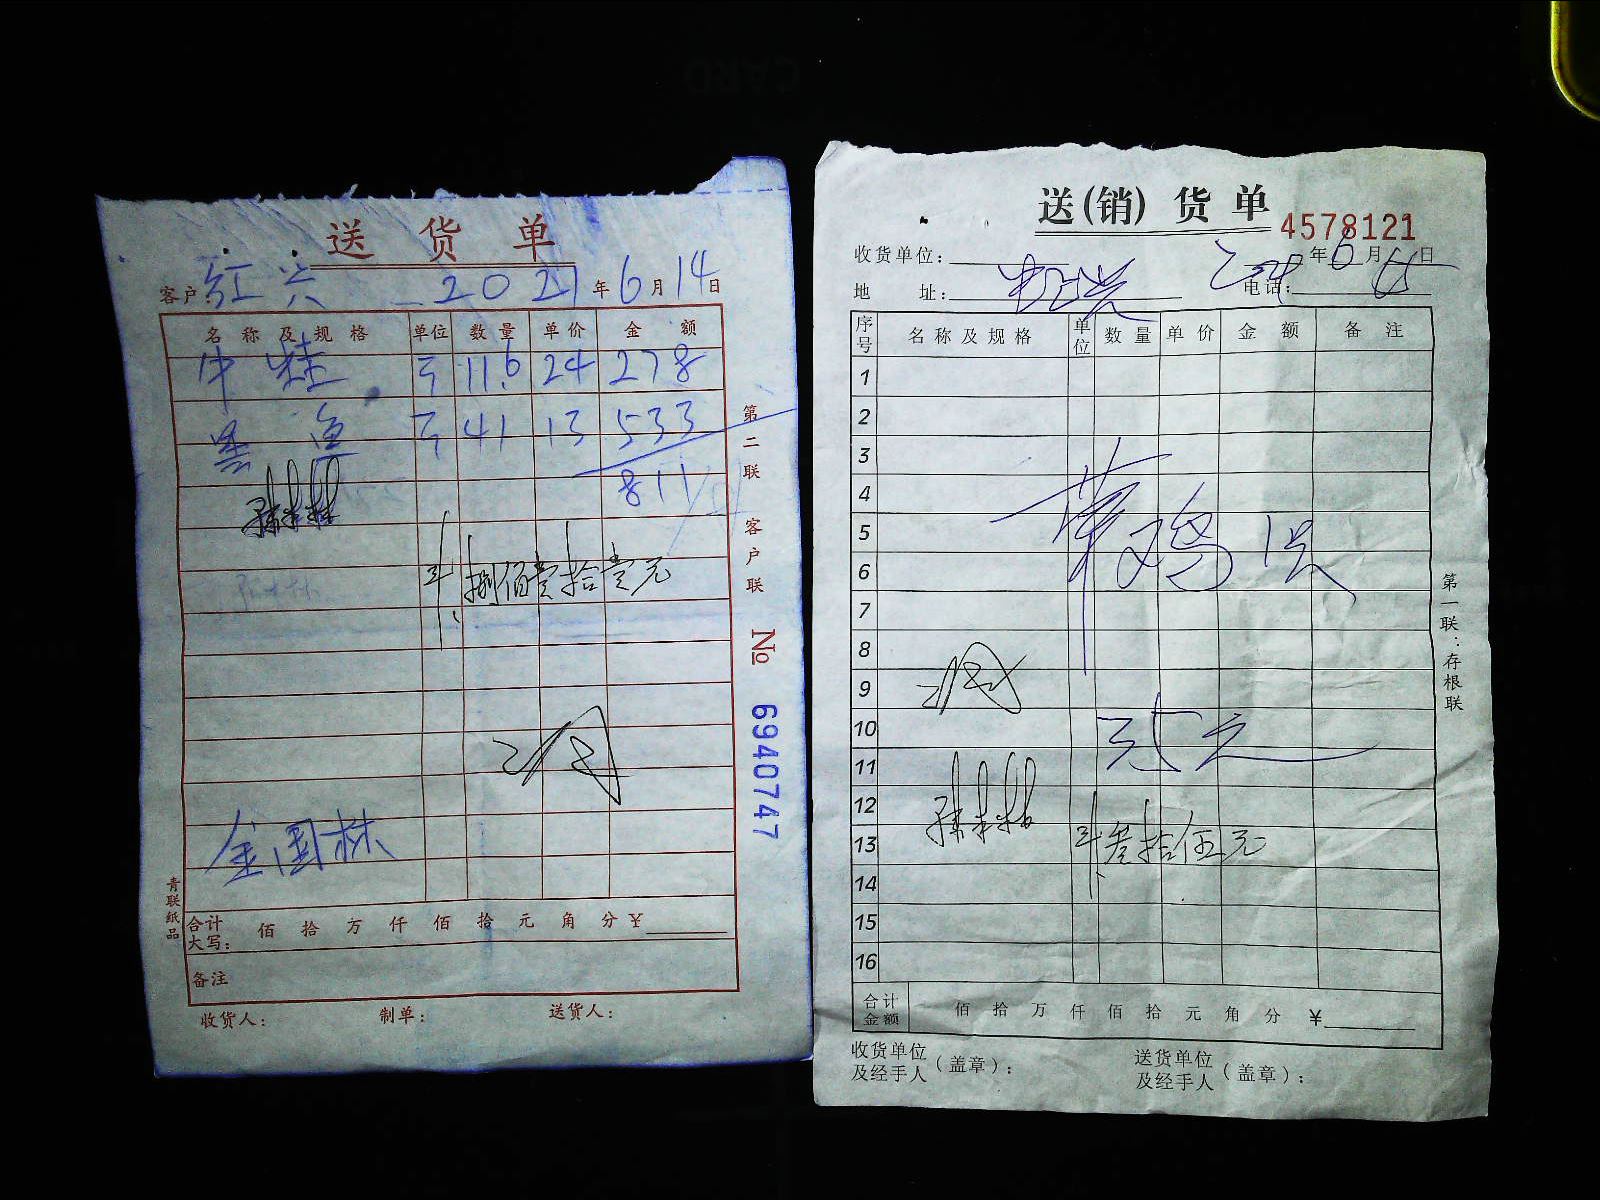 送货单
客户: 红兴 2021年6月14日
名称及规格 单位 数量 单价 金额
中桂 斤 11.6 24 278
黑鱼 斤 41 13 533
811
计捌佰壹拾壹元
金国林
合计大写: 佰 拾 万 仟 佰 拾 元 角 分 ¥
备注
收货人: 制单: 送货人:
第二联 客户联
№ 6940747
青联纸品
送(销)货单
4578121
收货单位: 年6月15日
地 址: 电话:
序号 名称及规格 单位 数量 单价 金额 备注
1
2
3
4
5
6
7
8
9
10
11
12
13
14
15
16
草鸡1只
35元
计叁拾伍元
合计金额 佰 拾 万 仟 佰 拾 元 角 分 ¥
收货单位及经手人(盖章): 送货单位及经手人(盖章):
第一联:存根联